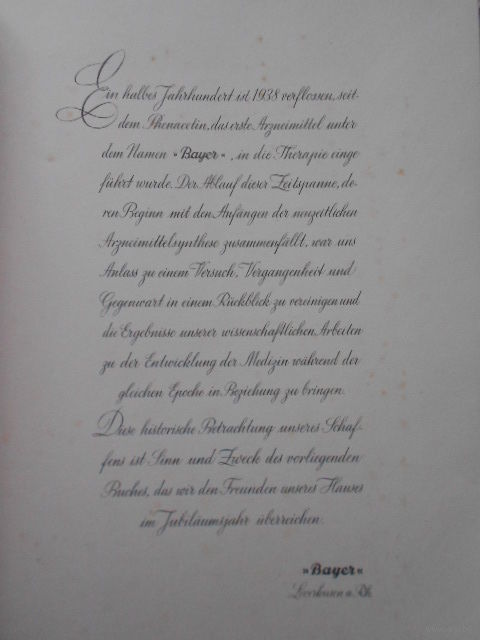 Ein halbes Jahrhundert ist 1938 verflossen, seit-
dem Phenacetin, das erste Arzneimittel unter
dem Namen »Bayer«, in die Therapie einge
führt wurde. Der Ablauf dieser Zeitspanne, de-
ren Beginn mit den Anfängen der neuzeitlichen
Arzneimittelsynthese zusammenfällt, war uns
Anlass zu einem Versuch, Vergangenheit und
Gegenwart in einem Rückblick zu vereinigen und
die Ergebnisse unserer wissenschaftlichen Arbeiten
zu der Entwicklung der Medizin während der
gleichen Epoche in Beziehung zu bringen.
Diese historische Betrachtung unseres Schaf-
fens ist Sinn und Zweck des vorliegenden
Buches, das wir den Freunden unseres Hauses
im Jubiläumsjahr überreichen.
»Bayer«
Leverkusen a. Rh.